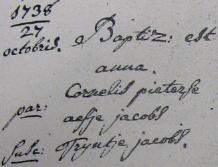 1738
27
octobris. Baptiz: est
anna.
Cornelis pieterse
par: aefje jacobs
Susc: Tryntje jacobs.